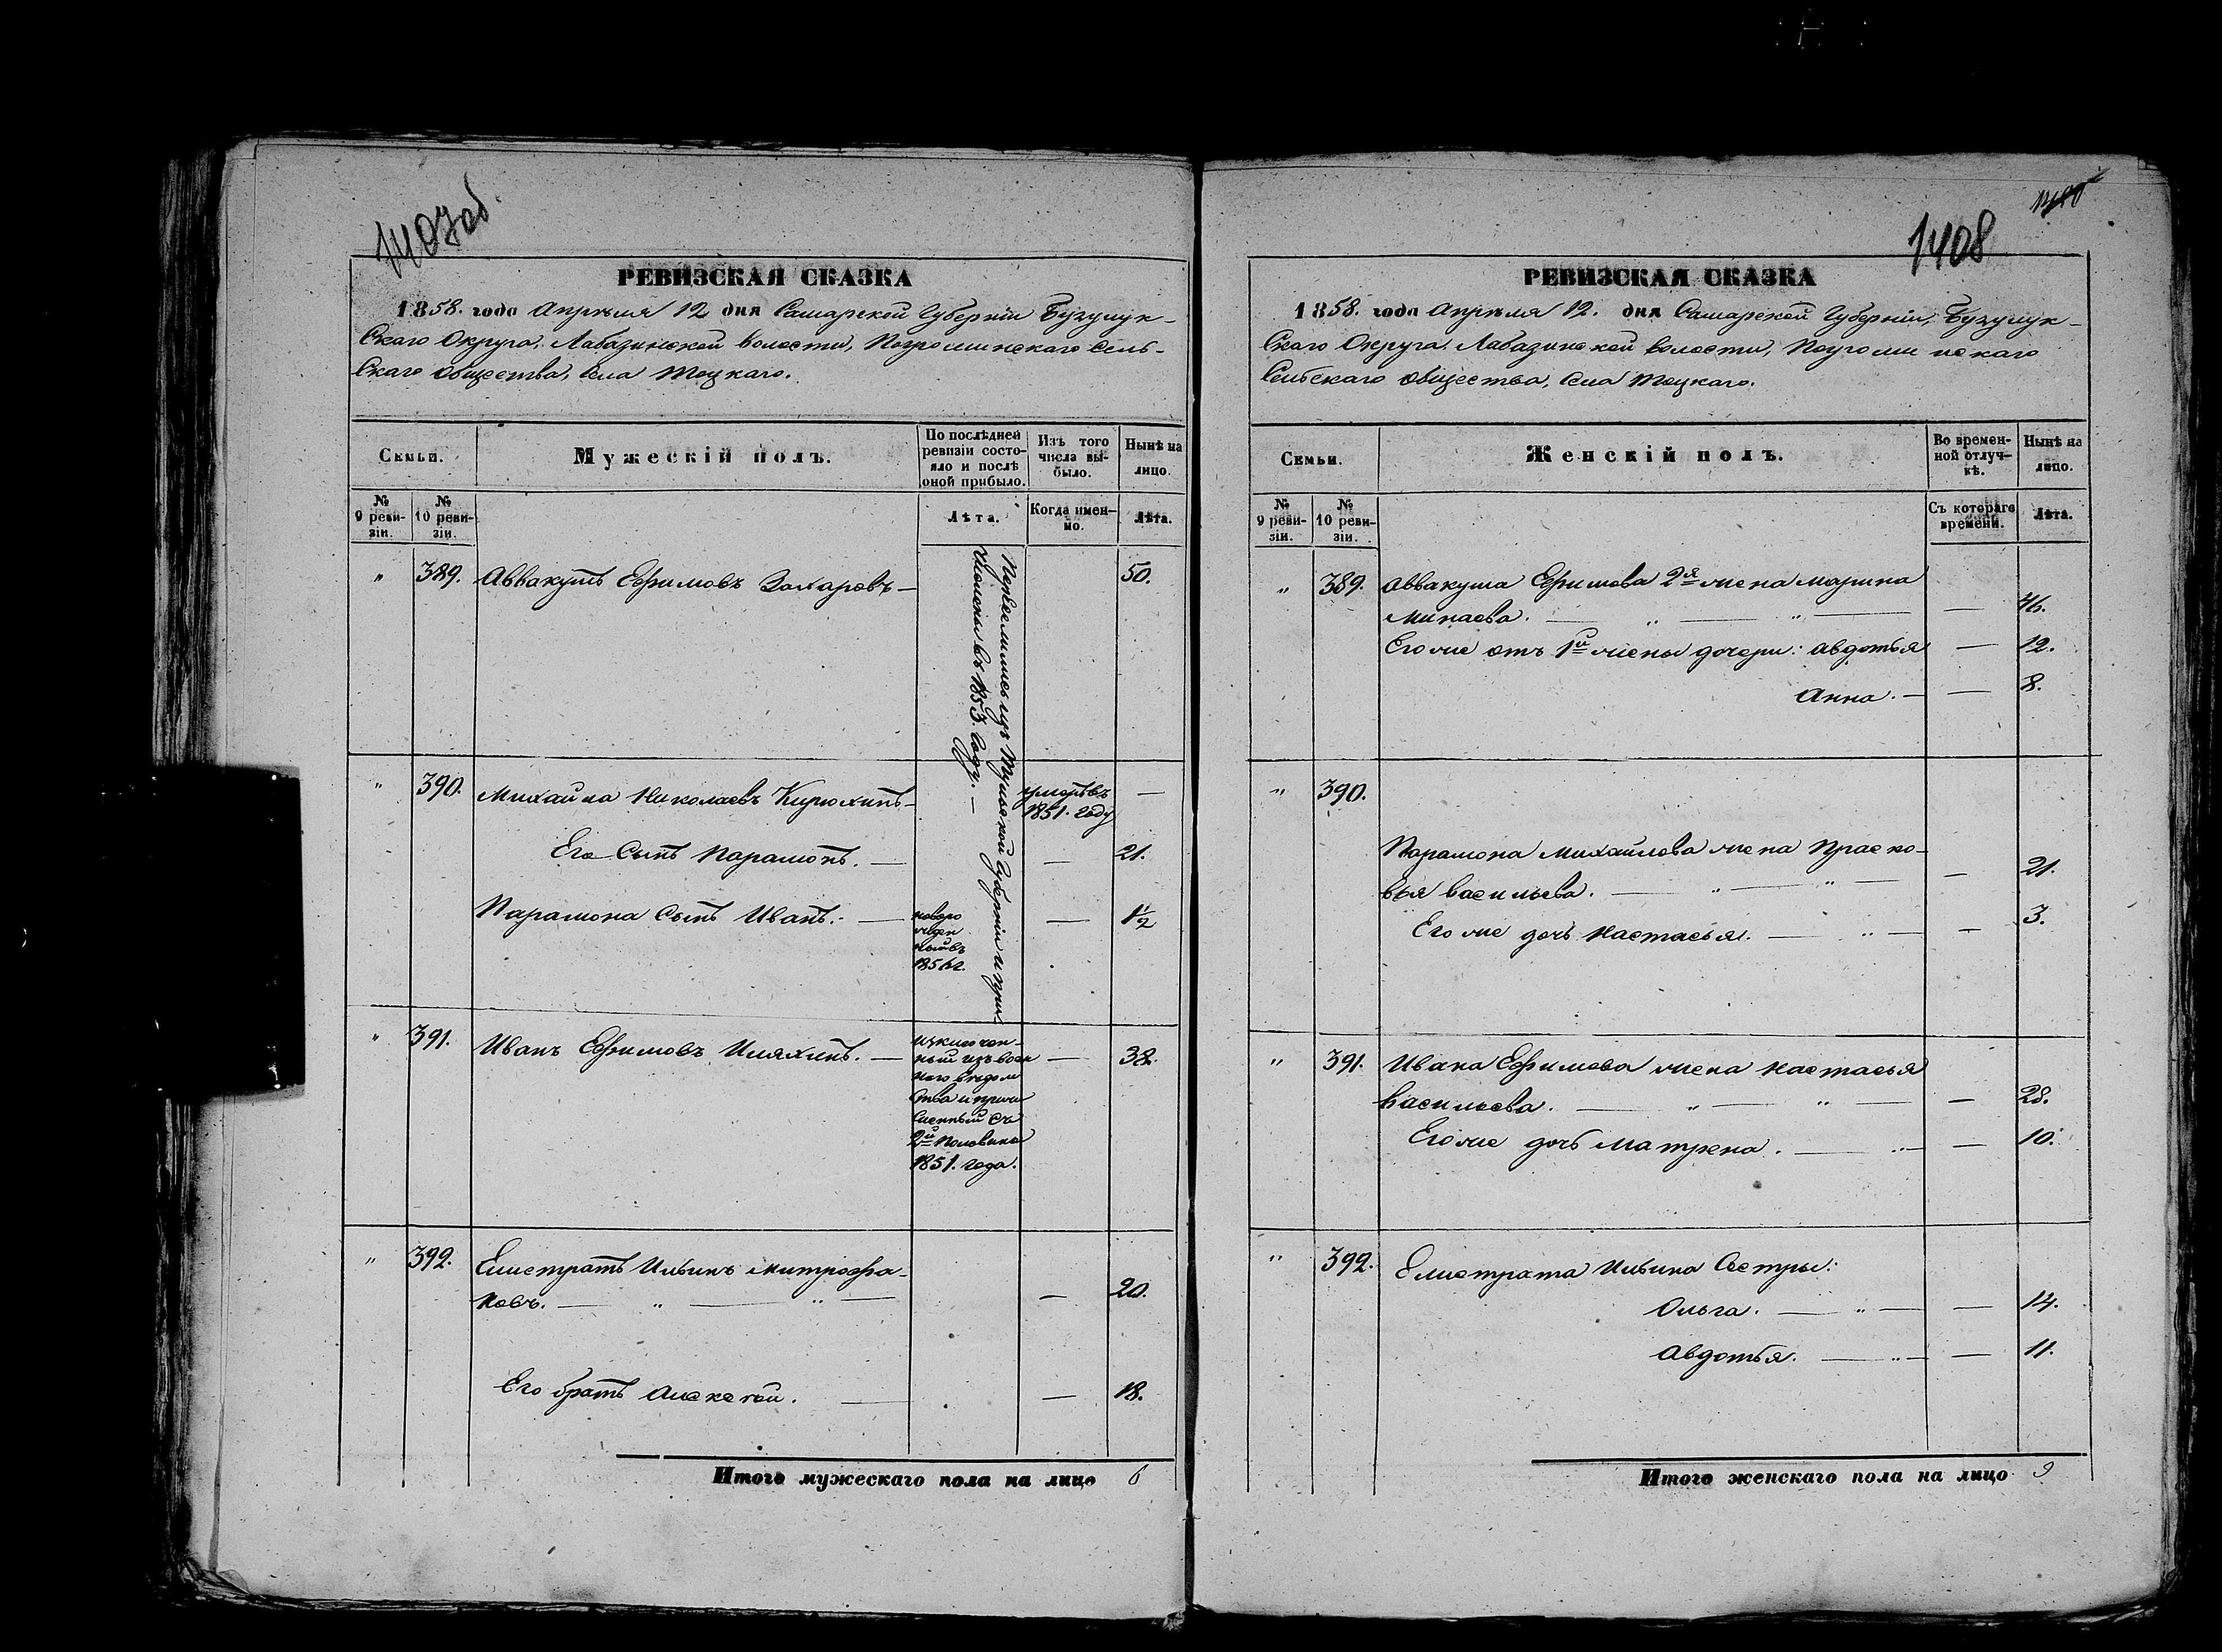 1407 об.
РЕВИЗСКАЯ СКАЗКА
1858. года Апрѣля 12 дня Самарской Губерніи Бузулук-
скаго Округа, Лабазинской волости, Погроминскаго Сель-
скаго Общества, Села Тоцкаго.
Семьи.
Мужескій полъ.
По послѣдней ревизіи состояло и послѣ оной прибыло.
Изъ того числа выбыло.
Нынѣ на лицо.
№ 9 ревизіи.
№ 10 ревизіи.
Лѣта.
Когда именно.
Лѣта.
Переселились изъ Тульской Губерніи и при-
числены въ 1853. году. —
" 389. Аввакумъ Ефимовъ Захаровъ — 50.
" 390. Михайла Николаевъ Кирюхинъ — умеръ въ 1851. году —
Его Сынъ Парамонъ. — — 21.
Парамона Сынъ Иванъ. — новорожденный въ 1856 г. — 1½
" 391. Иванъ Ефимовъ Иляхинъ. — — 38.
исключен-
ный изъ воен
наго вѣдом
ства и причи
сленный съ
2й половины
1851. года.
" 392. Елистратъ Ильинъ Митрофа-
новъ. — " — " — — 20.
Его братъ Алексѣй. — — 18.
Итого мужескаго пола на лицо 6
1408
РЕВИЗСКАЯ СКАЗКА
1858. года Апрѣля 12. дня Самарской Губерніи, Бузулук-
скаго Округа, Лабазинской волости, Погроминскаго
Сельскаго Общества, Села Тоцкаго.
Семьи.
Женскій полъ.
Во временной отлучкѣ.
Нынѣ на лицо.
№ 9 ревизіи.
№ 10 ревизіи.
Съ котораго времени.
Лѣта.
" 389. Аввакума Ефимова 2я жена Марина
Минаева. — " — " — — 46.
Его же отъ 1й жены дочери: Авдотья — 12.
Анна. — — 8.
" 390.
Парамона Михайлова жена Праско-
вья Васильева. — " — " — — 21.
Его же дочь Настасья. — " — — 3.
" 391. Ивана Ефимова жена Настасья
Васильева. — " — " — — 28.
Его же дочь Матрена. — " — — 10.
" 392. Елистрата Ильина Сестры:
Ольга. — " — — 14.
Авдотья. — " — — 11.
Итого женскаго пола на лицо 9